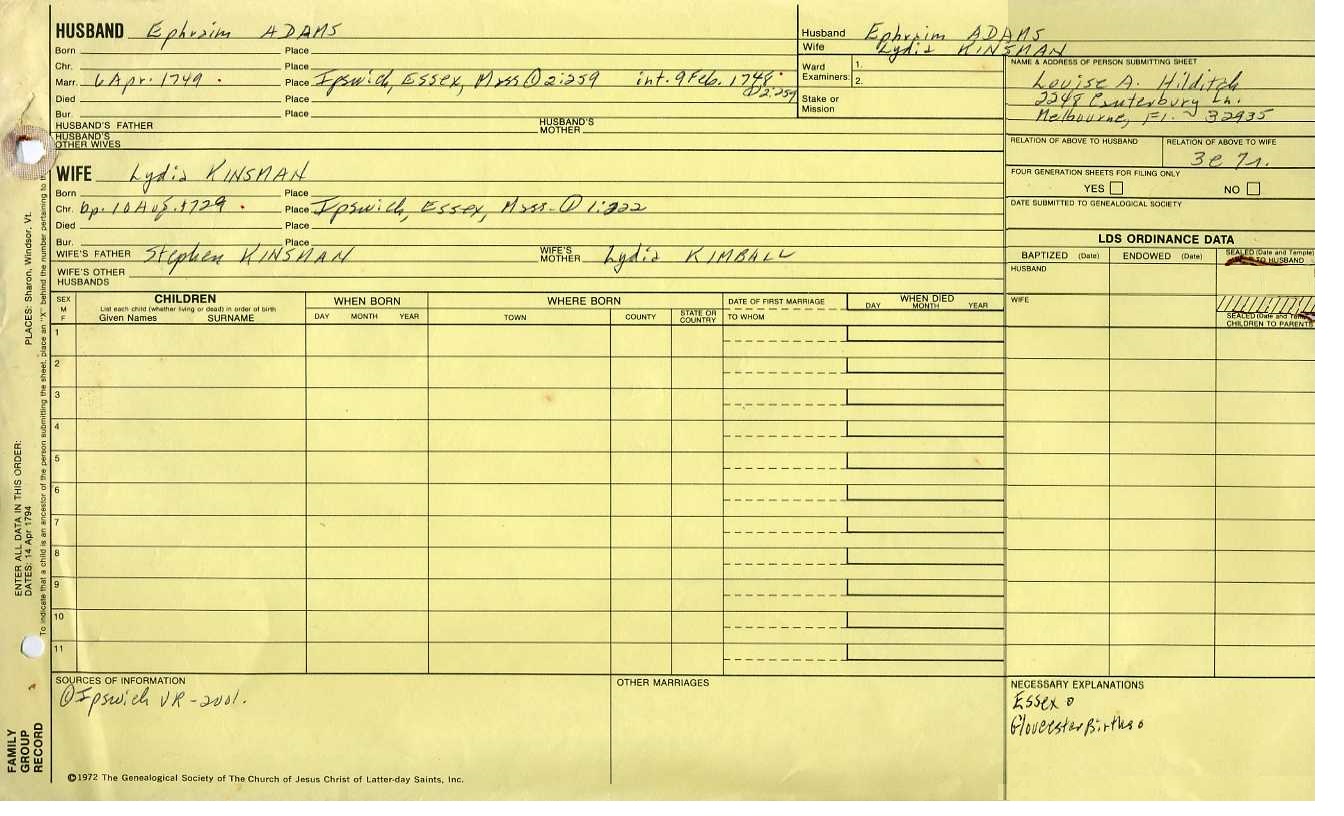 HUSBAND Ephraim ADAMS
Born Place
Chr. Place
Marr. 6 Apr. 1749 . Place Ipswich, Essex, Mass ① 2:259 int. 9 Feb. 1748 .
① 2:259
Died Place
Bur. Place
HUSBAND'S FATHER HUSBAND'S MOTHER
HUSBAND'S OTHER WIVES
Husband Ephraim ADAMS
Wife Lydia KINSMAN
Ward Examiners: 1.
2.
Stake or Mission
NAME & ADDRESS OF PERSON SUBMITTING SHEET
Louise A. Hilditch
2248 Canterbury Ln.
Melbourne, Fl. ~ 32935
RELATION OF ABOVE TO HUSBAND RELATION OF ABOVE TO WIFE
FOUR GENERATION SHEETS FOR FILING ONLY
YES NO
DATE SUBMITTED TO GENEALOGICAL SOCIETY
WIFE Lydia KINSMAN
Born Place
Chr. bp. 10 Aug. 1729 . Place Ipswich, Essex, Mass. ① 1:222
Died Place
Bur. Place
WIFE'S FATHER Stephen KINSMAN WIFE'S MOTHER Lydia KIMBALL
WIFE'S OTHER HUSBANDS
LDS ORDINANCE DATA
BAPTIZED (Date) ENDOWED (Date) SEALED (Date and Temple)
TO HUSBAND
HUSBAND
WIFE
SEALED (Date and Temple)
CHILDREN TO PARENTS
SEX
M
F
CHILDREN
List each child (whether living or dead) in order of birth
Given Names SURNAME
WHEN BORN
DAY MONTH YEAR
WHERE BORN
TOWN COUNTY STATE OR COUNTRY
DATE OF FIRST MARRIAGE
TO WHOM
WHEN DIED
DAY MONTH YEAR
1
2
3
4
5
6
7
8
9
10
11
SOURCES OF INFORMATION
① Ipswich VR - 2001.
OTHER MARRIAGES
NECESSARY EXPLANATIONS
Essex o
Gloucester Births o
©1972 The Genealogical Society of The Church of Jesus Christ of Latter-day Saints, Inc.
FAMILY
GROUP
RECORD
ENTER ALL DATA IN THIS ORDER:
DATES: 14 Apr 1794
PLACES: Sharon, Windsor, Vt.
To indicate that a child is an ancestor of the person submitting the sheet, place an "X" behind the number pertaining to